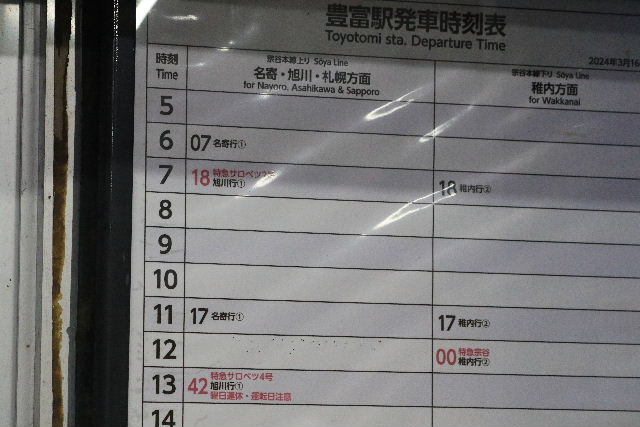 豊富駅発車時刻表
Toyotomi sta. Departure Time
2024年3月16
時刻
Time
宗谷本線上り Sōya Line
名寄・旭川・札幌方面
for Nayoro, Asahikawa & Sapporo
宗谷本線下り Sōya Line
稚内方面
for Wakkanai
5
6
07 名寄行①
7
18 特急サロベツ2号
旭川行①
18 稚内行②
8
9
10
11
17 名寄行①
17 稚内行②
12
00 特急宗谷
稚内行②
13
42 特急サロベツ4号
旭川行①
曜日運休・運転日注意
14